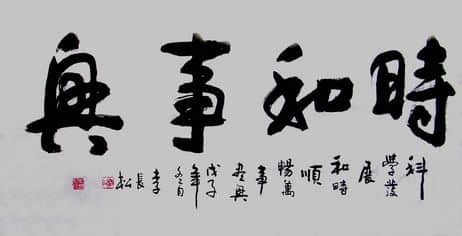 時和事興
科
學發
展
和時
順
暢萬
事
興
戊子
年
李
長
松